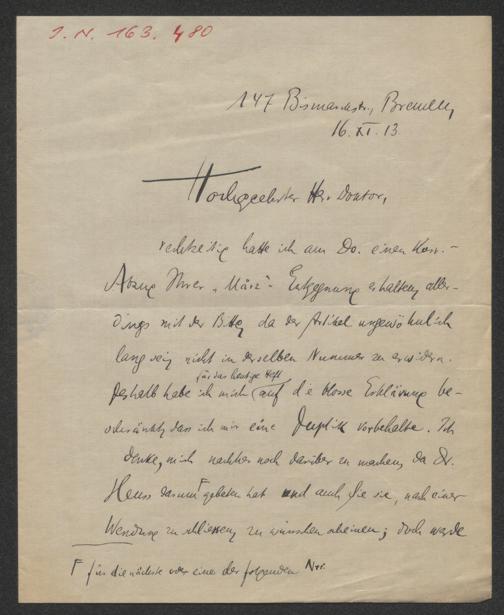 I. N. 163.480
147 Bismarckstr., Bremen,
16. XI. 13
Hochgeehrter Herr Doktor,
rechtzeitig hatte ich am Do. einen Korr.-
Abzug Ihrer „März"- Entgegnung erhalten, aller-
dings mit der Bitte, da der Artikel ungewöhnlich
lang sei, nicht in derselben Nummer zu erwidern.
für das heutige Heft
Deshalb habe ich mich auf die blosse Erklärung be-
schränkt, dass ich mir eine Duplik vorbehalte. Ich
denke, mich nachher noch darüber zu machen, da Dr.
Heuss darum gebeten hat und auch Sie sie, nach einer
Wendung zu schliessen, zu wünschen scheinen; doch werde
für die nächste oder eine der folgenden Nrn.